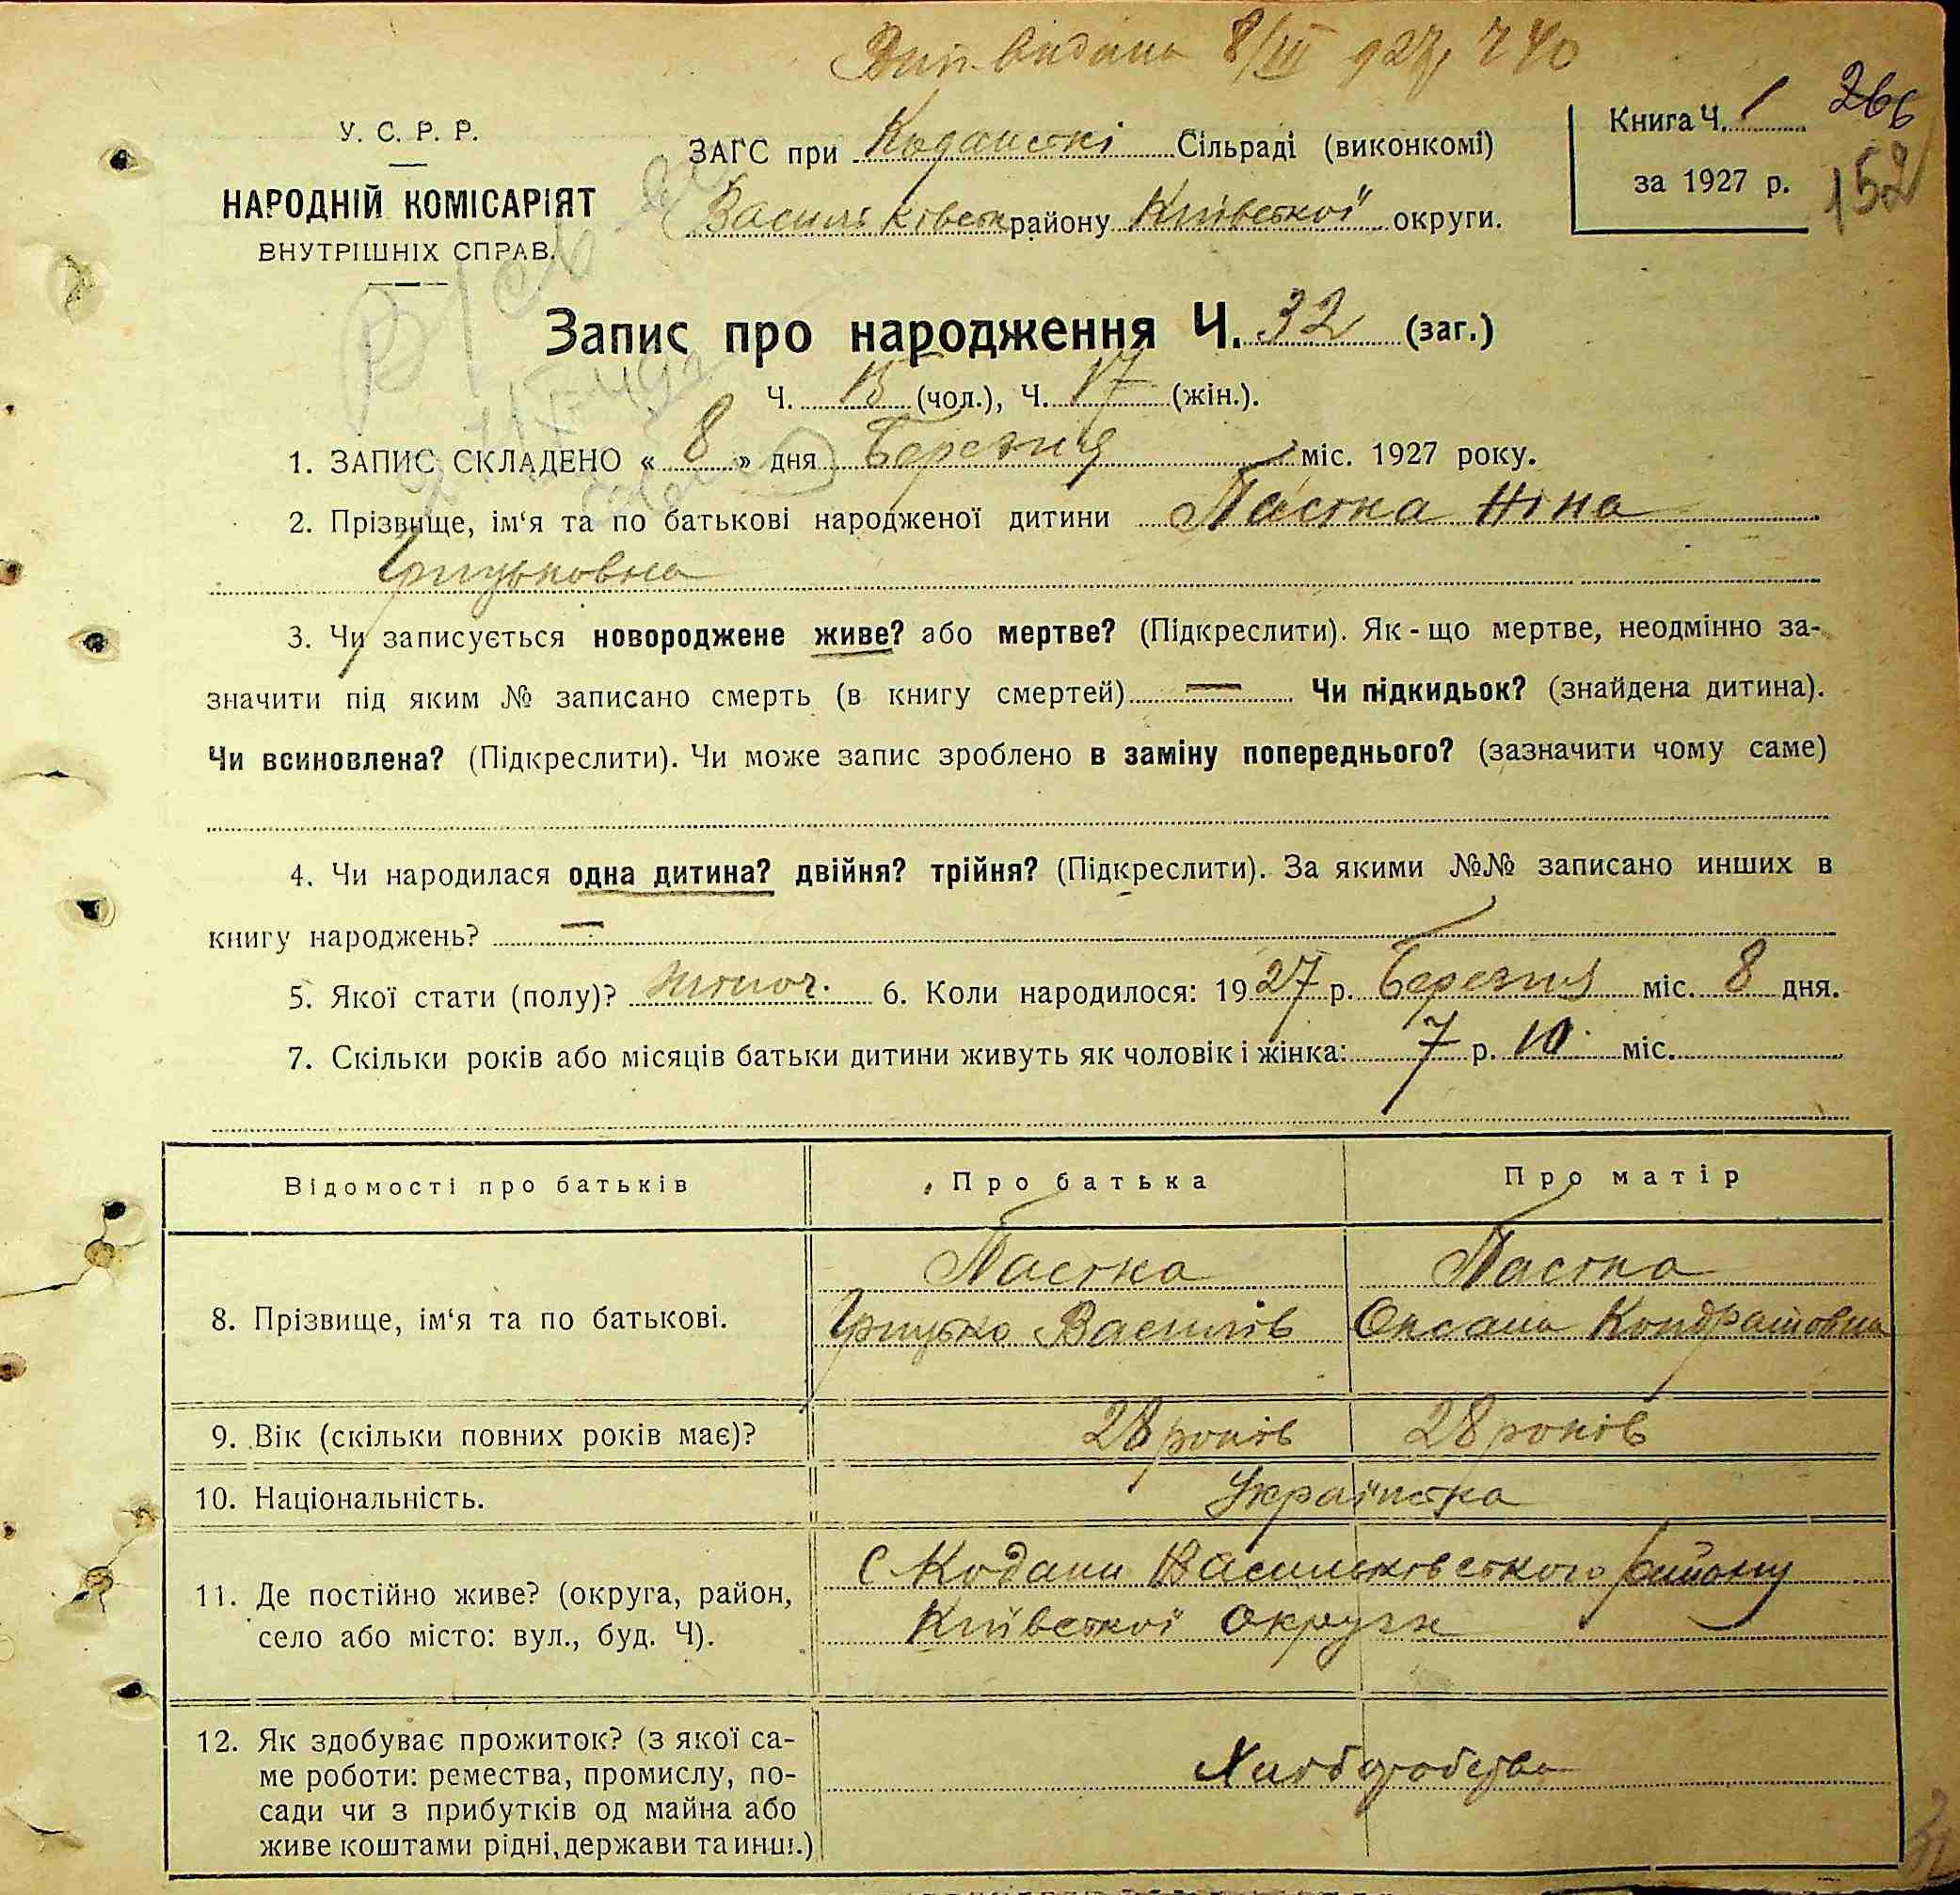 Вип. видана 8/III 927р. 740
У. С. Р. Р.
НАРОДНІЙ КОМІСАРІЯТ
ВНУТРІШНІХ СПРАВ.
ЗАГС при Кодакські Сільраді (виконкомі)
Васильківськ району Київської округи.
Книга Ч. 1
за 1927 р.
266
152
Запис про народження Ч. 32 (заг.)
Ч. 15 (чол.), Ч. 17 (жін.).
1. ЗАПИС СКЛАДЕНО « 8 » дня Березня міс. 1927 року.
2. Прізвище, ім‘я та по батькові народженої дитини Пастка Ніна
Грицьковна
3. Чи записується новороджене живе? або мертве? (Підкреслити). Як-що мертве, неодмінно за-
значити під яким № записано смерть (в книгу смертей) — Чи підкидьок? (знайдена дитина).
Чи всиновлена? (Підкреслити). Чи може запис зроблено в заміну попереднього? (зазначити чому саме)
4. Чи народилася одна дитина? двійня? трійня? (Підкреслити). За якими №№ записано инших в
книгу народжень? —
5. Якої стати (полу)? жіноч. 6. Коли народилося: 1927 р. Березня міс. 8 дня.
7. Скільки років або місяців батьки дитини живуть як чоловік і жінка: 7 р. 10 міс.
Відомості про батьків Про батька Про матір
8. Прізвище, ім‘я та по батькові. Пастка Пастка
Грицько Василів Оксана Кондратовна
9. Вік (скільки повних років має)? 28 років 28 років
10. Національність. Українська
11. Де постійно живе? (округа, район,
село або місто: вул., буд. Ч).
С Кодаки Васильківського району
Київської округи
12. Як здобуває прожиток? (з якої са-
ме роботи: ремества, промислу, по-
сади чи з прибутків од майна або
живе коштами рідні, держави та инш.)
Хліборобство